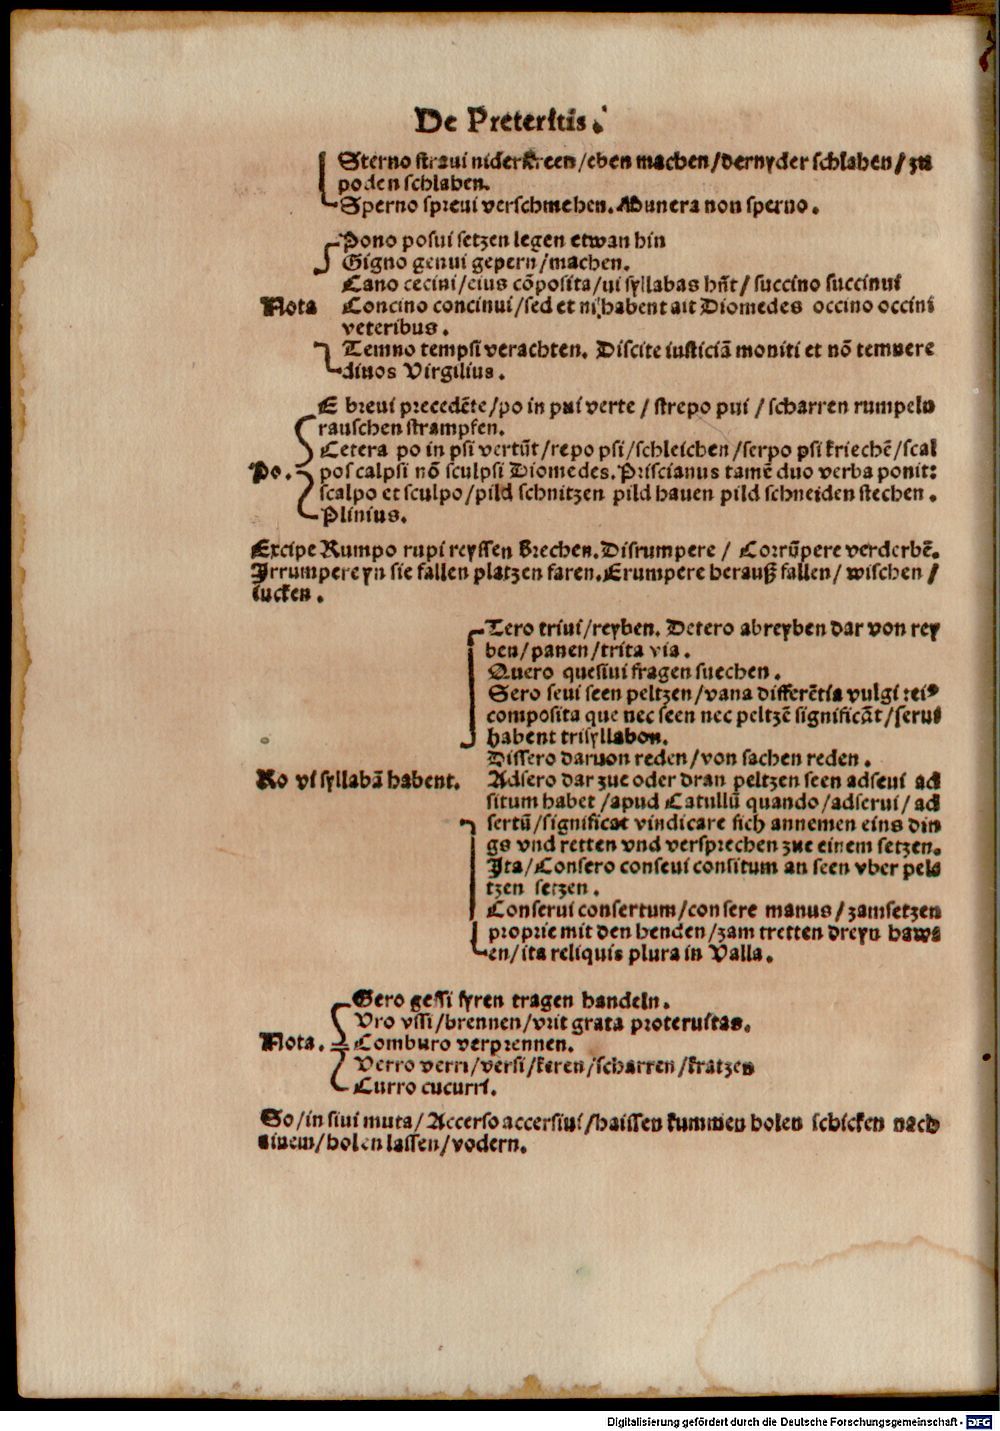 De Preteritis.
Sterno straui niderstreen/eben machen/dernyder schlahen/zu
poden schlahen.
Sperno spreui verschmehen. Munera non sperno.
Pono posui setzen legen etwan hin
Gigno genui gepern/machen.
Cano cecini/eius cõposita/ui syllabas hñt/succino succinui
Nota Concino concinui/sed et ni habent ait Diomedes occino occini
veteribus.
Temno tempsi verachten. Discite iusticiã moniti et nõ temnere
diuos Virgilius.
E breui precedẽte/po in pui verte/strepo pui/scharren rumpeln
rauschen strampfen.
Cetera po in psi vertũt/repo psi/schleichen/serpo psi kriechẽ/scal
Po. pos calpsi nõ sculpsi Diomedes. Priscianus tamẽ duo verba ponit:
scalpo et sculpo/pild schnitzen pild hauen pild schneiden stechen.
Plinius.
Excipe Rumpo rupi reyssen Brechen. Disrumpere/Corrũpere verderbẽ.
Irrumpere yn sie fallen platzen faren. Erumpere herauß fallen/wischen/
lucken.
Tero triui/reyben. Detero abreyben dar von rey
ben/panen/trita via.
Quero quesiui fragen suechen.
Sero seui seen peltzen/vana differẽtia vulgi rei
composita que nec seen nec peltzẽ significãt/serui
habent trisyllabon.
Dissero daruon reden/von sachen reden.
Ro vi syllabã habent. Adsero dar zue oder dran peltzen seen adseui ad
situm habet/apud Catullũ quando/adserui/ad
sertũ/significat vindicare sich annemen eins din
gs vnd retten vnd versprechen zue einem setzen.
Ita/Consero conseui consitum an seen vber pel
tzen setzen.
Conserui consertum/consere manus/zamsetzen
proprie mit den henden/zam tretten dreyn haw
en/ita reliquis plura in Valla.
Gero gessi fyren tragen handeln.
Vro vssi/brennen/vrit grata proteruitas.
Nota. Comburo verprennen.
Verro verri/versi/keren/scharren/kratzen
Curro cucurri.
So/in siui muta/Accerso accersiui/haissen kummen holen schicken nach
ainem/holen lassen/vodern.
Digitalisierung gefördert durch die Deutsche Forschungsgemeinschaft - DFG